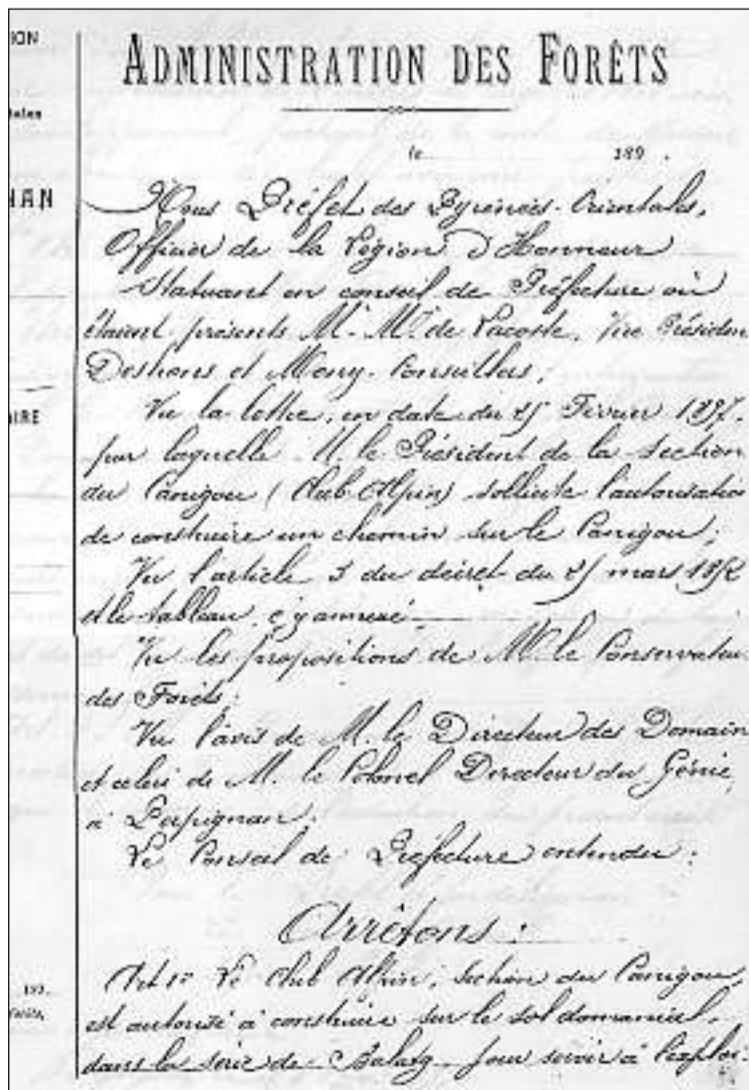 ION
ADMINISTRATION DES FORÊTS
tales
le 189 .
HAN
Nous Préfet des Pyrénées-Orientales,
Officier de la Légion d'Honneur
Statuant en conseil de Préfecture où
étaient présents M. M. de Lacoste, Vice Présiden
Deshons et Mony Conseillers;
AIRE
Vu la lettre, en date du 25 Février 1897,
par laquelle M. le Président de la Section
du Canigou (Club Alpin) sollicite l'autorisation
de construire un chemin sur le Canigou;
Vu l'article 3 du décret du 25 mars 1852
et le tableau c y annexé
Vu les propositions de M. le Conservateur
des Forêts;
Vu l'avis de M. le Directeur des Domain
et celui de M. le Colonel Directeur du Génie,
à Perpignan.
Le Conseil de Préfecture entendu:
Arrêtons:
Art 1er Le Club Alpin, Section du Canigou,
est autorisé à construire sur le sol domanial,
dans la série de Balatg pour servir à l'exploi